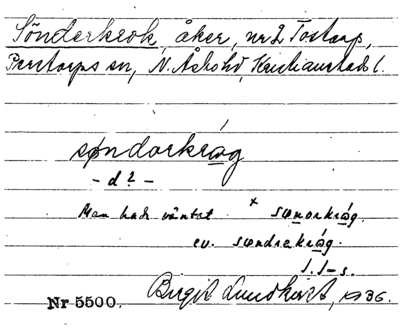 Sönderkrok, åker, nr 2 Tostarp,
Perstorps sn, N. Åsbo hd, Kristianstads l.
søndorkråg
- d? -
Man hade väntat × sønorkråg.
ev. søndrekråg.
I. I-s.
Birgit Lundkvist, 1936.
Nr 5500.